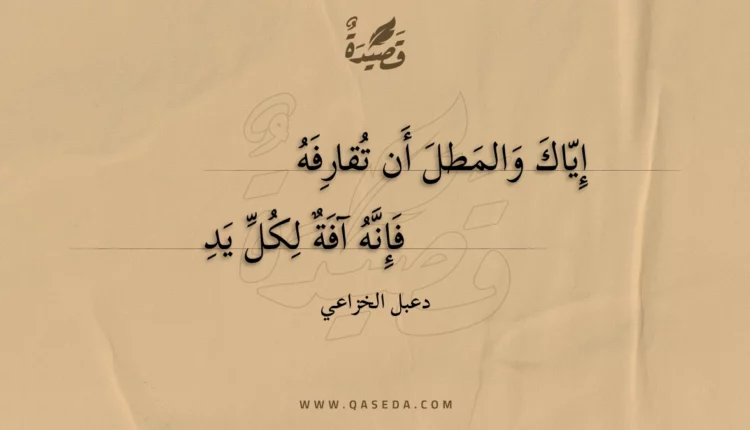 قَصِيدَةٌ
إِيّاكَ وَالمَطلَ أَن تُقارِفَهُ
فَإِنَّهُ آفَةٌ لِكُلِّ يَدِ
دعبل الخزاعي
WWW.QASEDA.COM